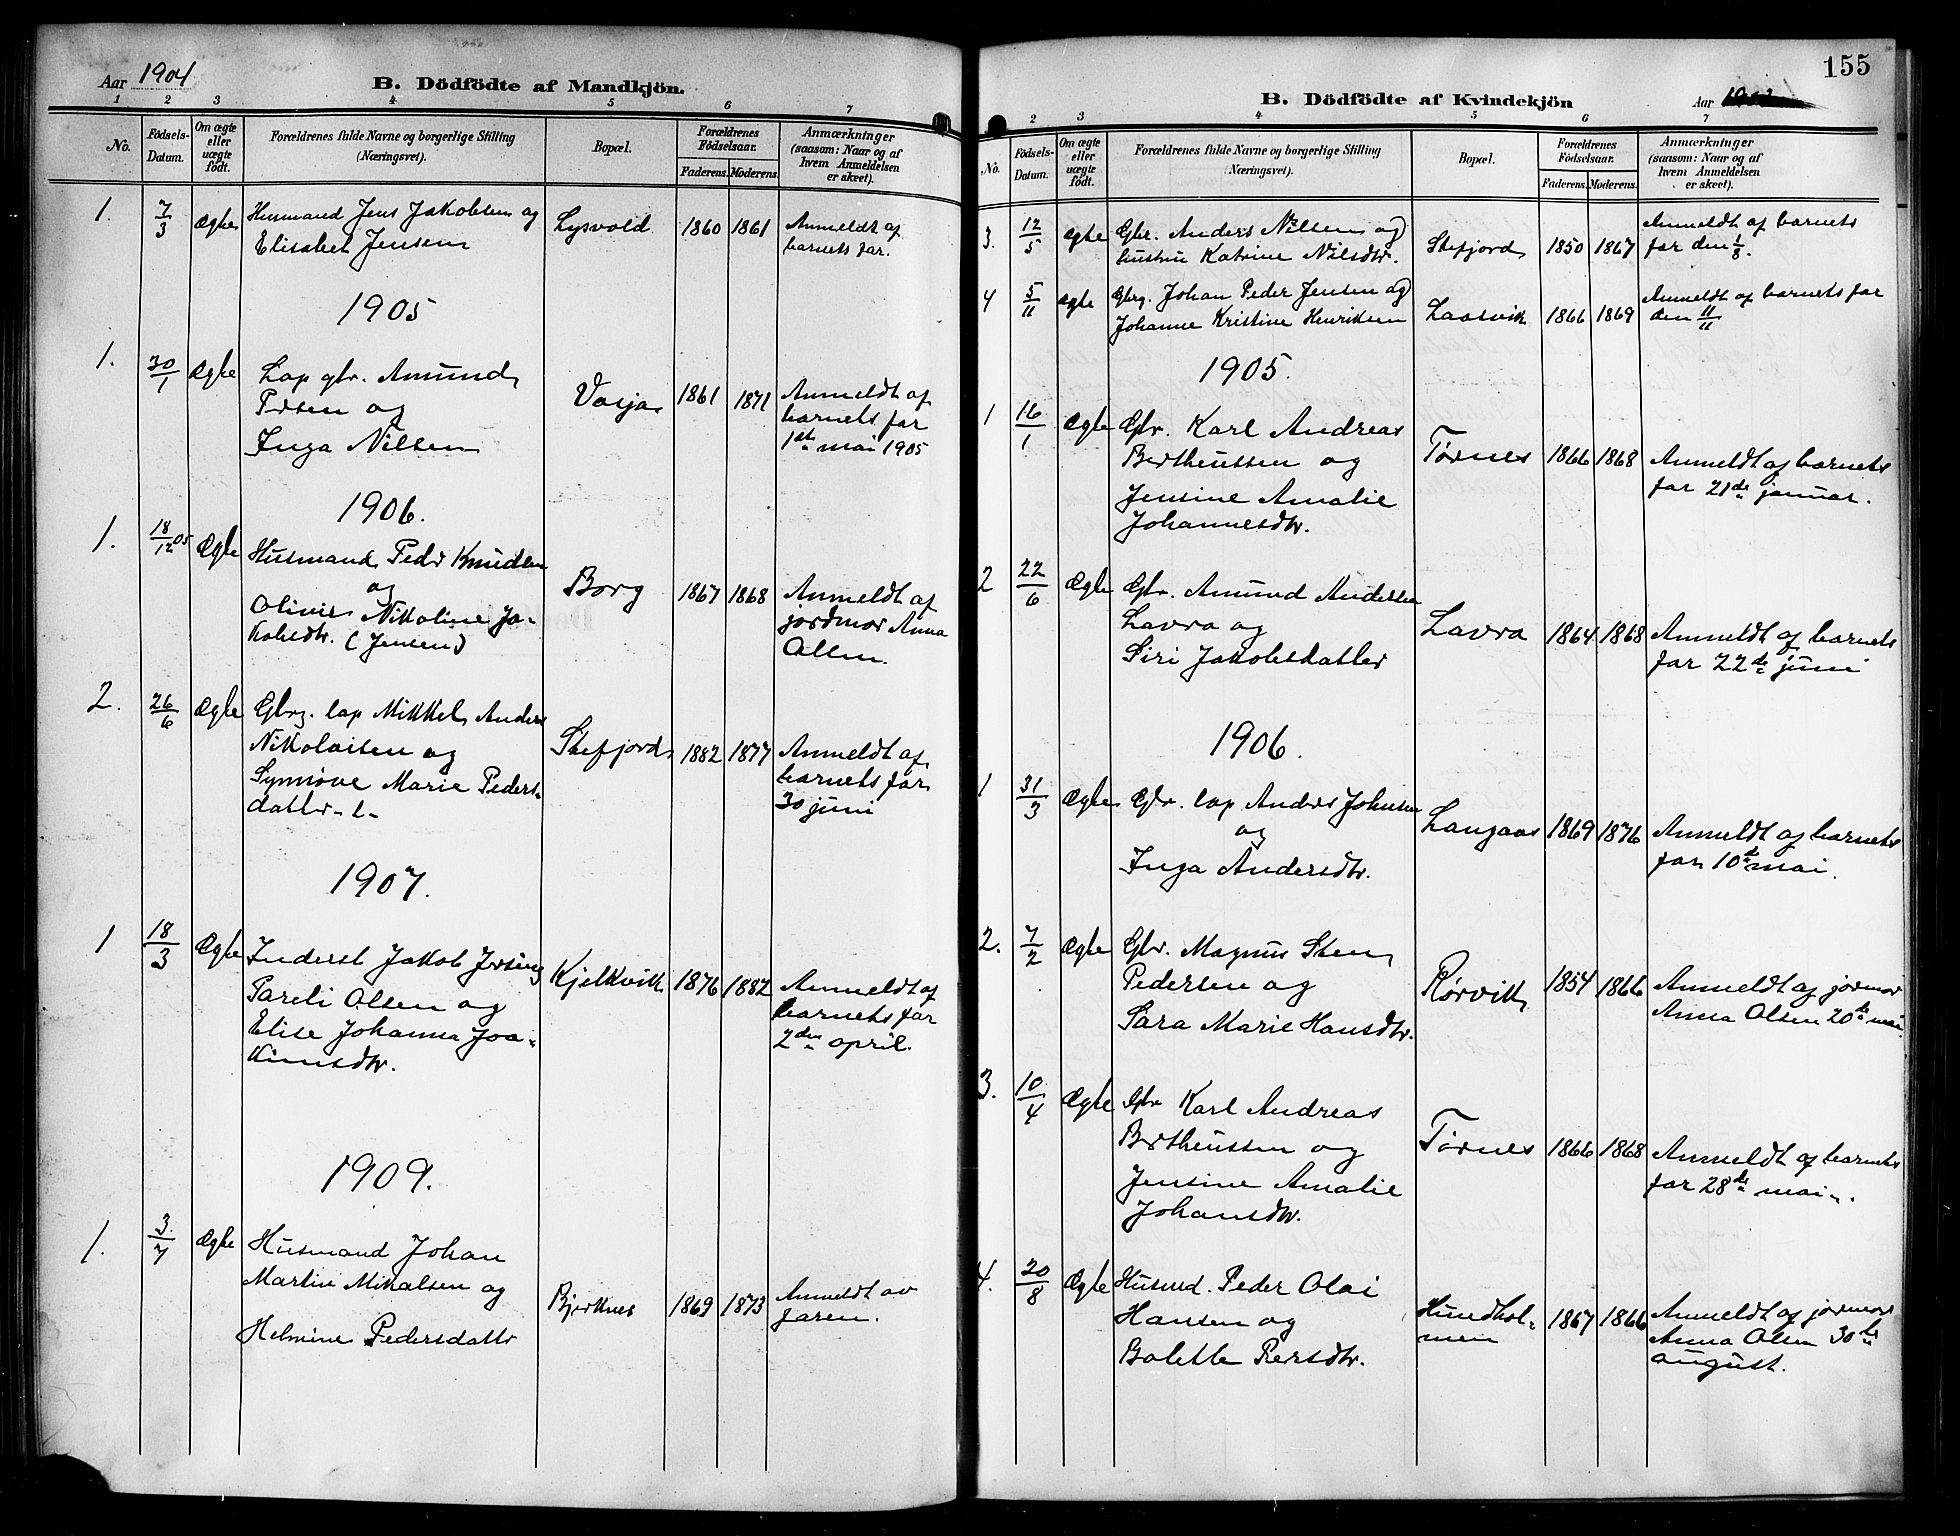 Aar 1904
B. Dödfödte af Mandkjön.
1 2 3 4 5 6 7
No.
Födsels-Datum.
Om ægte eller uægte født.
Forældrenes fulde Navne og borgerlige Stilling (Næringsvei).
Bopæl.
Forældrenes Fødselsaar.
Faderens. Moderens.
Anmærkninger (saasom: Naar og af hvem Anmeldelsen er skeet).
1. 7/3 Ægte Husmand Jens Jakobsen og Lysvold 1860 1861 Anmeldt af
Elisabet Jensen barnets far.
1905
1. 30/1 Ægte Lap gbr. Amund Vasja 1861 1871 Anmeldt af
Prsen og barnets far
Inga Nilsen 1ste mai 1905
1906.
1. 18/12 05 Ægte Husmand Peder Knudsen Borg 1867 1868 Anmeldt af
og jordmor Anna
Nikoline Ja- Olsen.
kobsdtr. (Jensen)
2. 26/6 Ægte Gbrg. lap Mikkel Anders Stefjord 1882 1877 Anmeldt af
Nikolaisen og barnets far
Synnøve Marie Peders- 30 juni
datter
1907.
1 18/3 Ægte Inderst Jakob Kjelkvik 1876 1882 Anmeldt af
Pareli Olsen og barnets far
Elise Johanna Joa- 2den april.
kimsdtr.
1909.
1. 3/7 Ægte Husmand Johan Bjerknes 1869 1873 Anmeldt av
Martin Mikalsen og faren.
Helmine Pedersdattr
155
B. Dödfödte af Kvindekjön
Aar
2 3 4 5 6 7
No.
Födsels-Datum.
Om ægte eller uægte født.
Forældrenes fulde Navne og borgerlige Stilling (Næringsvei).
Bopæl.
Forældrenes Fødselsaar.
Faderens. Moderens.
Anmærkninger (saasom: Naar og af hvem Anmeldelsen er skeet).
3. 12/5 Ægte Gbr. Anders Nilsen og Stefjord 1850 1867 Anmeldt af barnets
hustru Katrine Nilsdtr. far den 1/8.
4 5/11 Ægte Gbrg. Johan Peder Jensen og Laasvik 1866 1869 Anmeldt af barnets far
Johanne Kristine Henriksen den 11/11
1905.
1 16/1 Ægte Gbr. Karl Andreas Tørnes 1866 1868 Anmeldt af barnets
Bertheussen og far 21de januar.
Jensine Amalie
Johannesdtr.
2 22/6 Ægte Gbr. Amund Andersen Lavra 1864 1868 Anmeldt af barnets
Lavra og far 22de juni
Siri Jakobsdatter
1906.
1 31/3 Ægte Gbr. lap Anders Johnsen Langaas 1869 1876 Anmeldt af barnets
og far 10de mai.
Inga Andersdtr.
2. 7/2 Ægte Gbr. Magnus Sten Rørvik 1854 1866 Anmeldt af jormor
Pedersen og Anna Olsen 20de mai
Sara Marie Hansdtr.
3. 10/4 Ægte Gbr Karl Andreas Tørnes 1866 1868 Anmeldt af barnets
Bertheussen og far 28de mai.
Jensine Amalie
Johansdtr.
4. 20/8 Ægte Husmd. Peder Olai Hundhol- 1867 1866 Anmeldt af jormor
Hansen og men Anna Olsen 30te
Bolette Persdtr. august.